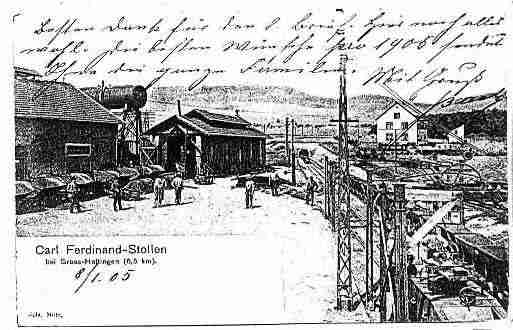 Besten Dank für den l. Brief. Frei nach alles
wohl. Die besten Wünsche pro 1905 sendet
Ihnen die ganze Familie. Mit Gruss
Carl Ferdinand-Stollen
bei Gross-Hettingen (6,5 km).
8/1.05